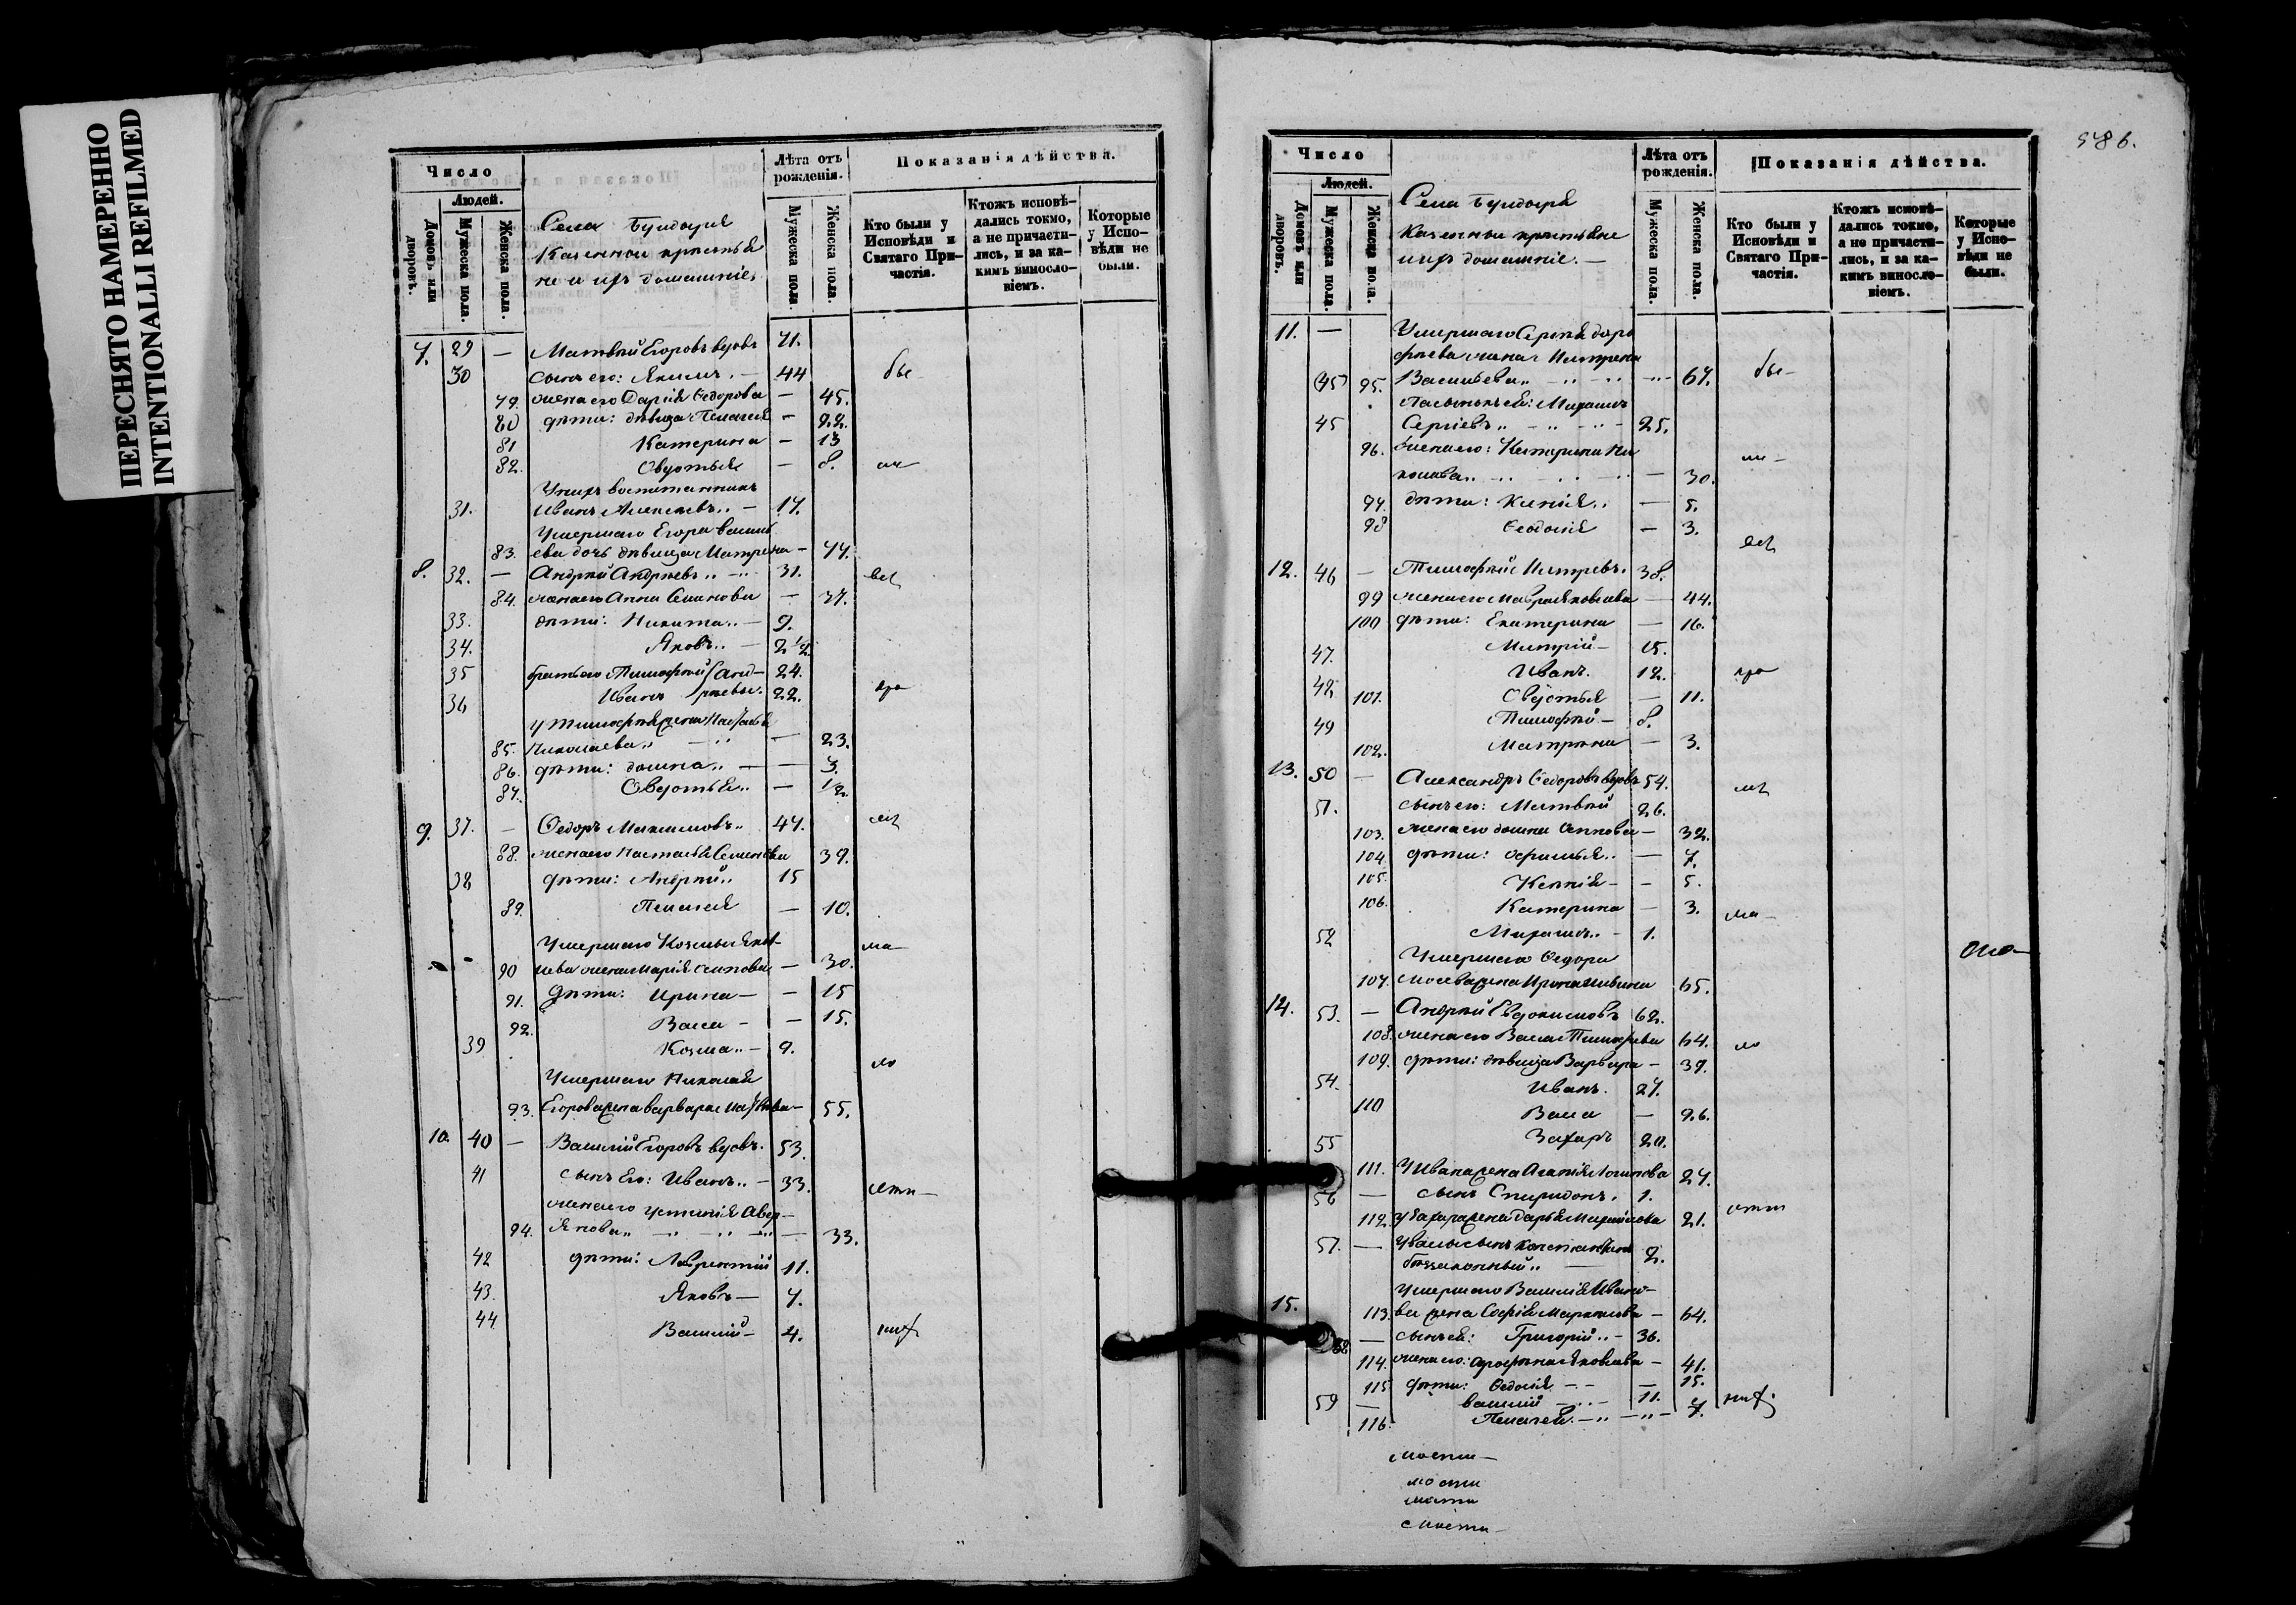 ПЕРЕСНЯТО НАМЕРЕННО
INTENTIONALLI REFILMED
Число
Людей.
Домовъ или дворовъ.
Мужеска пола.
Женска пола.
Села
не и ихъ домашніе,
Лѣта отъ рожденія.
Мужеска пола
Женска пола.
Показанія дѣйства.
Кто были у Исповѣди и Святаго Причастія.
Ктожъ исповѣдались токмо, а не причастились, и за какимъ винословіемъ.
Которые у Исповѣди не были.
7. 29 — Матвѣй Егоровъ вдовъ 71.
30 сынъ его: Якимъ. — 44 бы-
79. жена его Дарія Ѳедорова — 45.
80 дѣти: дѣвица Пелагея — 22.
81 Катерина — 13
82. Овдотья — 8. ли
У нихъ воспитанникъ
31. Иванъ Алексѣевъ.. — 17.
Умершаго Егора Василь
83. ева дочь дѣвица Матрена — 47.
8. 32. — Андрей Андреевъ.. 31. всѣ
84. жена его Анна Семенова — 37.
33. дѣти: Никита.. — 9.
34. Яковъ.. — 2 1/2
35 братья его Тимофей Анд- 24.
36 Иванъ реевы. 22. кро
у Тимофея жена Настасья
85. Николаева.. — 23.
86. дѣти: Домна.. — 3.
87. Овдотья.. — 1/2.
9. 37. — Ѳедоръ Максимовъ.. 47. мѣ
88. жена его Настасья Семенова 39.
38 дѣти: Андрей.. 15
89. Пелагея — 10.
Умершаго Козмы ма-
90 жена Марія Осипова — 30.
91. Дѣти: Ирина — 15
92. Васса — 15.
39 Козма.. — 9.
Умершаго Николая ло
93. Егорова жена Варвара — 55.
10. 40 — Василій Егоровъ вдовъ. 53.
41 сынъ Его: Иванъ.. — 33. лѣтн-
жена его Устинія Авер-
94. янова.. — 33.
42 дѣти: Лаврентій 11.
43. Яковъ — 7.
44 Василій — 4. ихъ
586.
Число
Людей.
Домовъ или дворовъ.
Мужеска пола.
Женска пола.
Села
Казенные крестьяне
и ихъ домашніе. —
Лѣта отъ рожденія.
Мужеска пола.
Женска пола.
Показанія дѣйства.
Кто были у Исповѣди и Святаго Причастія.
Ктожъ исповѣдались токмо, а не причастились, и за какимъ винословіемъ.
Которые у Исповѣди не были.
11. — Умершаго Сергѣя Доро
фѣева жена Матрена
(45) 95. Васильева.. 67. бы-
Пасынокъ ея: Михаилъ
45 Сергѣевъ.. 25.
96. жена его: Катерина Ни ли-
30.
97. дѣти: Ксенія.. — 5.
98 Ѳеодосія — 3.
всѣ
12. 46 — Тимофей Петровъ. 38.
99 жена его Мавра Яковлева — 44.
100 дѣти: Екатерина — 16.
47. Митрій — 15.
48 Иванъ. 12. кро
101. Овдотья — 11.
49 Тимофей — 8.
102. Матрена — 3.
13. 50 — Александръ Ѳедоровъ вдовъ 54. мѣ
51. сынъ его: Матвѣй 26.
103. жена его Домна — 32.
104. дѣти: — 7.
105. Ксенія — 5.
106. Катерина — 3. ма-
52 Михаилъ.. — 1.
Умершаго Ѳедора она-
107. жена Ирина 65.
14. 53. — Андрей Евдокимовъ 62.
108. жена его Васса Тимофеева 64. ло
109. дѣти: дѣвица Варвара — 39.
54. Иванъ. 27.
110 Васса — 26.
55 Захаръ 20.
111. У Ивана жена Агафія Логинова 27.
56 — сынъ Спиридонъ. 1.
112. у Захара жена Дарья Михайлова 21. лѣтн
57. — У Вассы сынъ Константинъ 2.
беззаконный..
Умершаго Василія Ивано-
15. 113. ва жена Софія — 64.
58 — сынъ ея: Григорій.. — 36.
114. жена его: Яковлева — 41.
115 Дѣти: Ѳедосія — 15.
59 — Василій 11. ихъ
116. Пелагея. — 7.